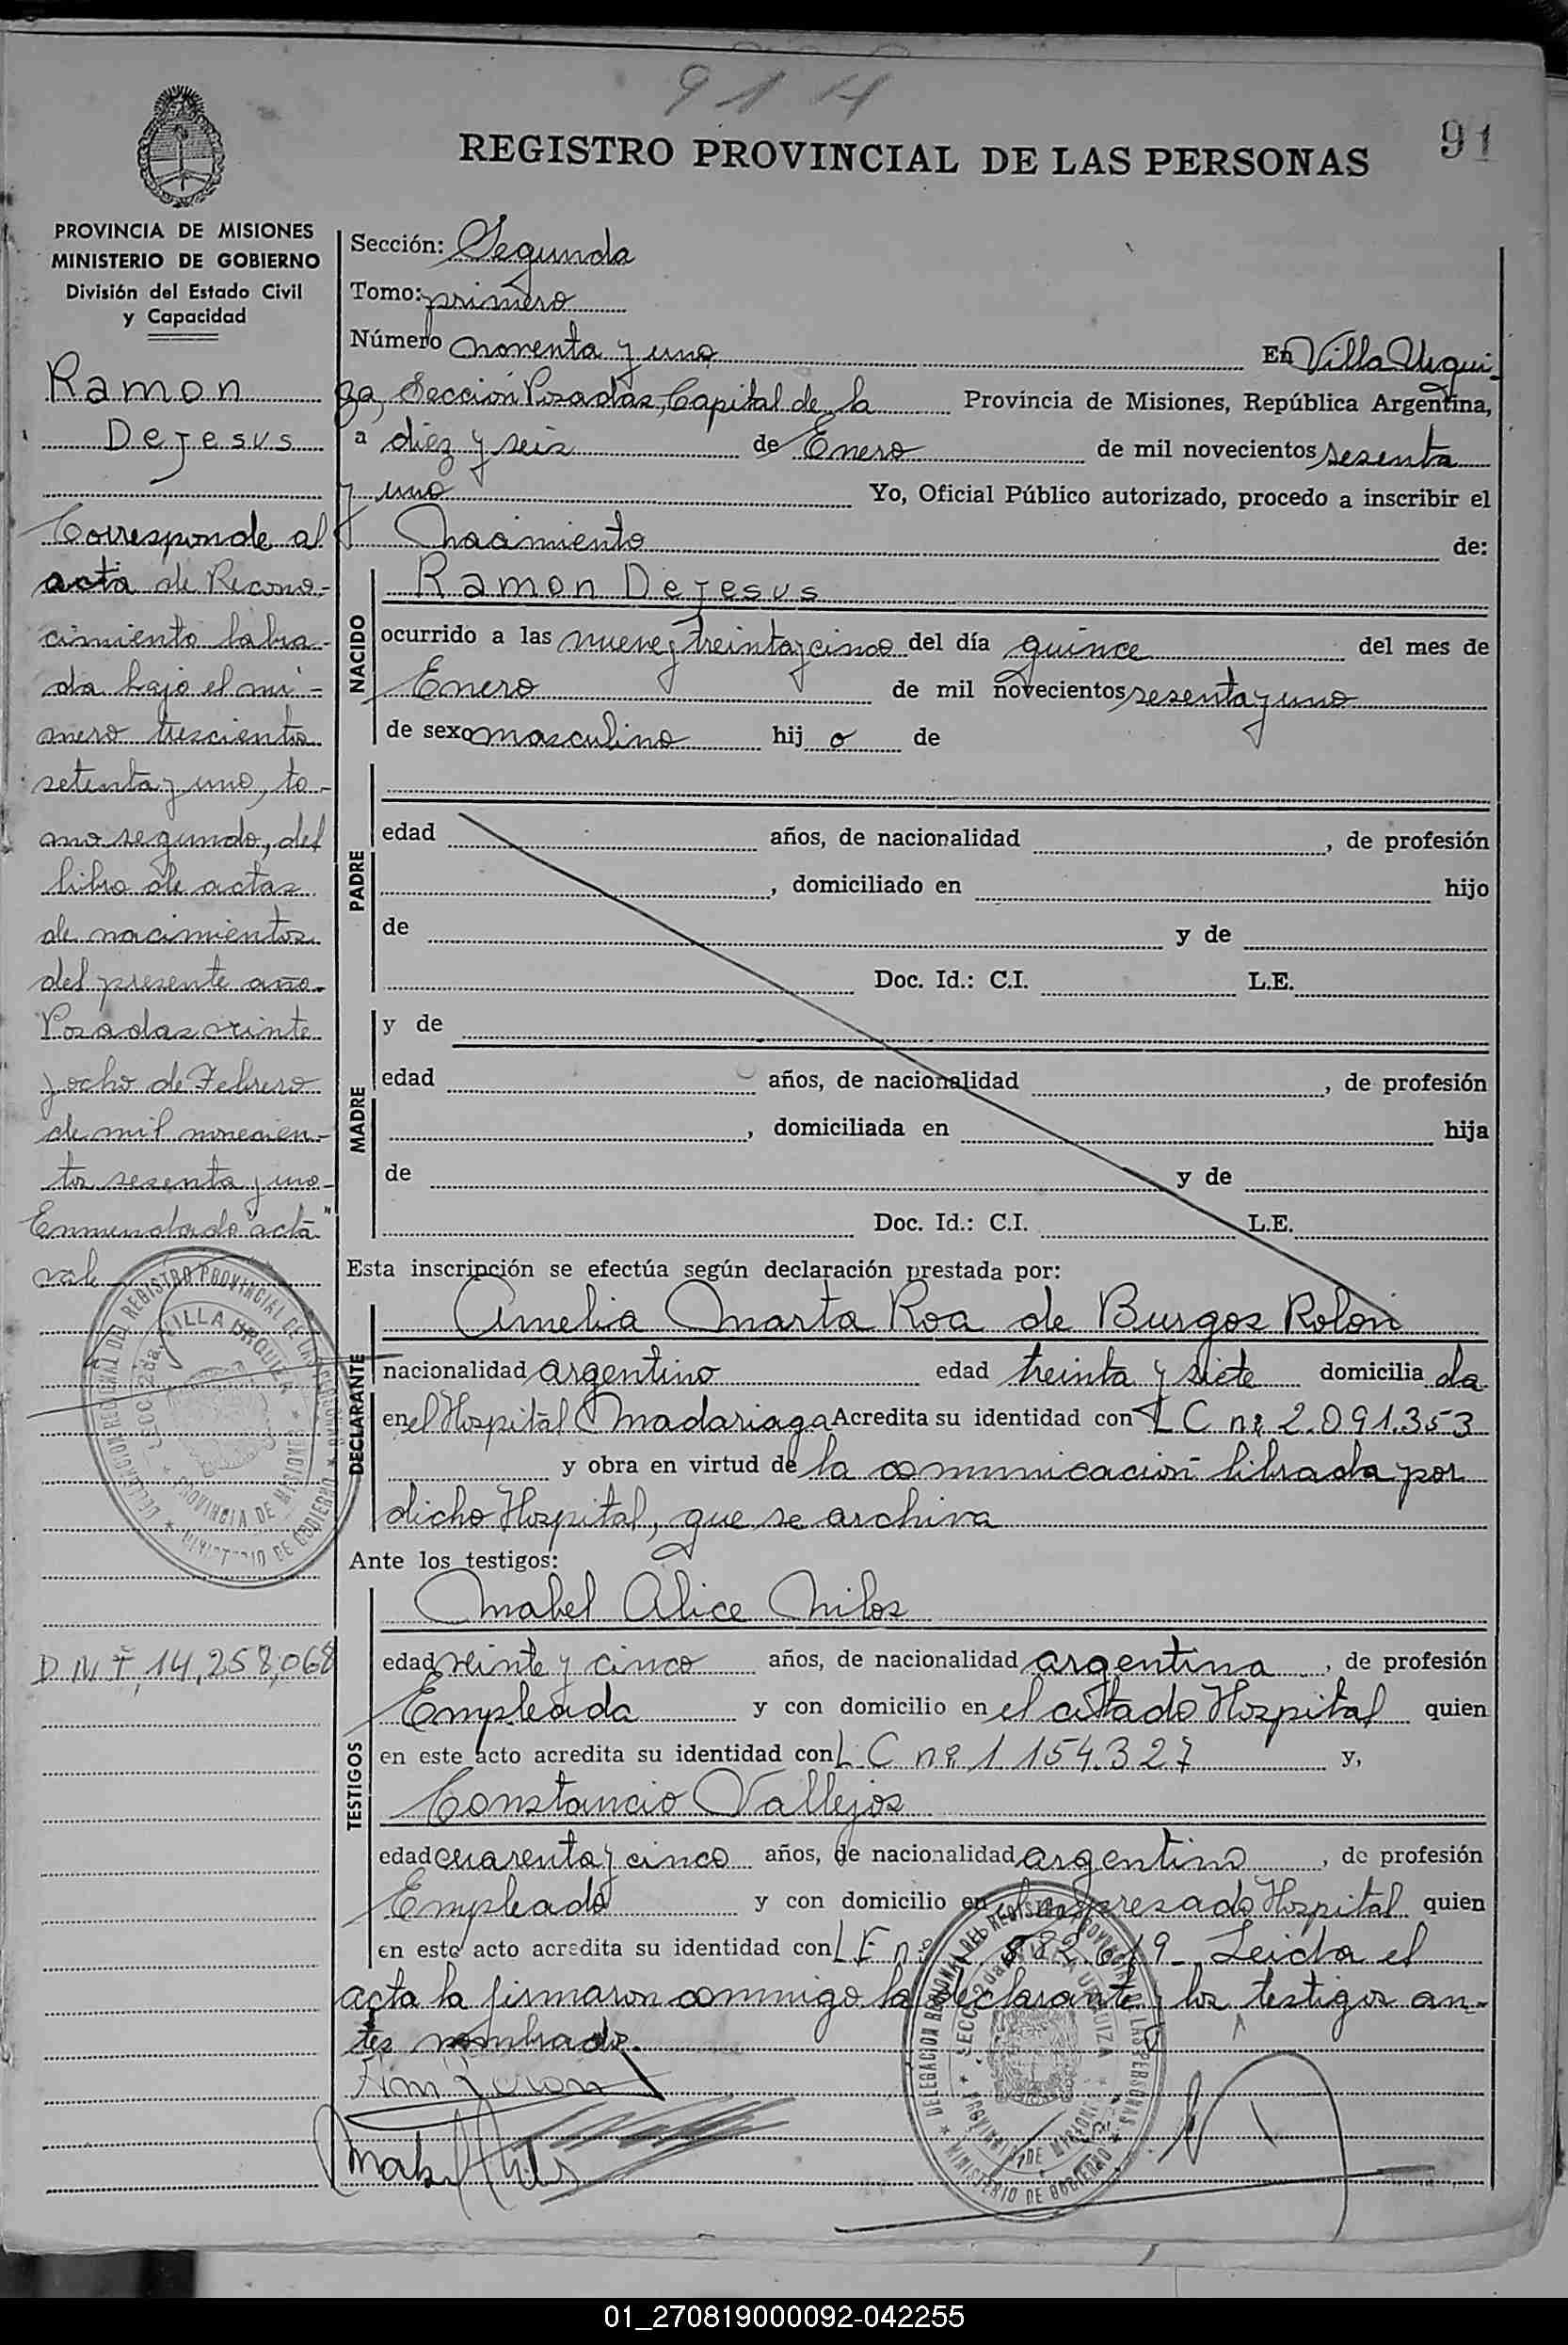 9 1 4
91
REGISTRO PROVINCIAL DE LAS PERSONAS
PROVINCIA DE MISIONES
MINISTERIO DE GOBIERNO
División del Estado Civil
y Capacidad
Ramon
Dejesus
Corresponde al
acta de Recono-
cimiento labra-
da bajo el nú-
mero trescientos
setenta y uno, to-
mo segundo, del
libro de actas
de nacimientos
del presente año.
Posadas veinte
y ocho de Febrero
de mil novecien-
tos sesenta y uno
Enmendado "acta"
vale
D N I 14,258,068
Sección: Segunda
Tomo: primero
Número noventa y uno En Villa Urqui-
za, Sección Posadas, Capital de la Provincia de Misiones, República Argentina,
a diez y seis de Enero de mil novecientos sesenta
y uno Yo, Oficial Público autorizado, procedo a inscribir el
Nacimiento de:
NACIDO
Ramon Dejesus
ocurrido a las nueve y treinta y cinco del día quince del mes de
Enero de mil novecientos sesenta y uno
de sexo masculino hijo de
PADRE
edad años, de nacionalidad , de profesión
, domiciliado en hijo
de y de
Doc. Id.: C.I. L.E.
MADRE
y de
edad años, de nacionalidad , de profesión
, domiciliada en hija
de y de
Doc. Id.: C.I. L.E.
Esta inscripción se efectúa según declaración prestada por:
DECLARANTE
Amelia Marta Roa de Burgos Rolon
nacionalidad argentino edad treinta y siete domiciliada
en el Hospital Madariaga Acredita su identidad con L C nº 2.091.353
y obra en virtud de la comunicación librada por
dicho Hospital, que se archiva
Ante los testigos:
TESTIGOS
Mabel Alice Milos
edad veinte y cinco años, de nacionalidad argentina, de profesión
Empleada y con domicilio en el citado Hospital quien
en este acto acredita su identidad con L. C nº 1.154.327 y,
Constancio Vallejos
edad cuarenta y cinco años, de nacionalidad argentino, de profesión
Empleado y con domicilio en el expresado Hospital quien
en este acto acredita su identidad con L E nº 882.619 - Leida el
acta la firmaron conmigo la declarante y los testigos an-
tes nombrado.
DELEGACION REGIONAL DEL REGISTRO PROVINCIAL DE LAS PERSONAS
SECC. 2da. VILLA URQUIZA
PROVINCIA DE MISIONES
MINISTERIO DE GOBIERNO
01_270819000092-042255